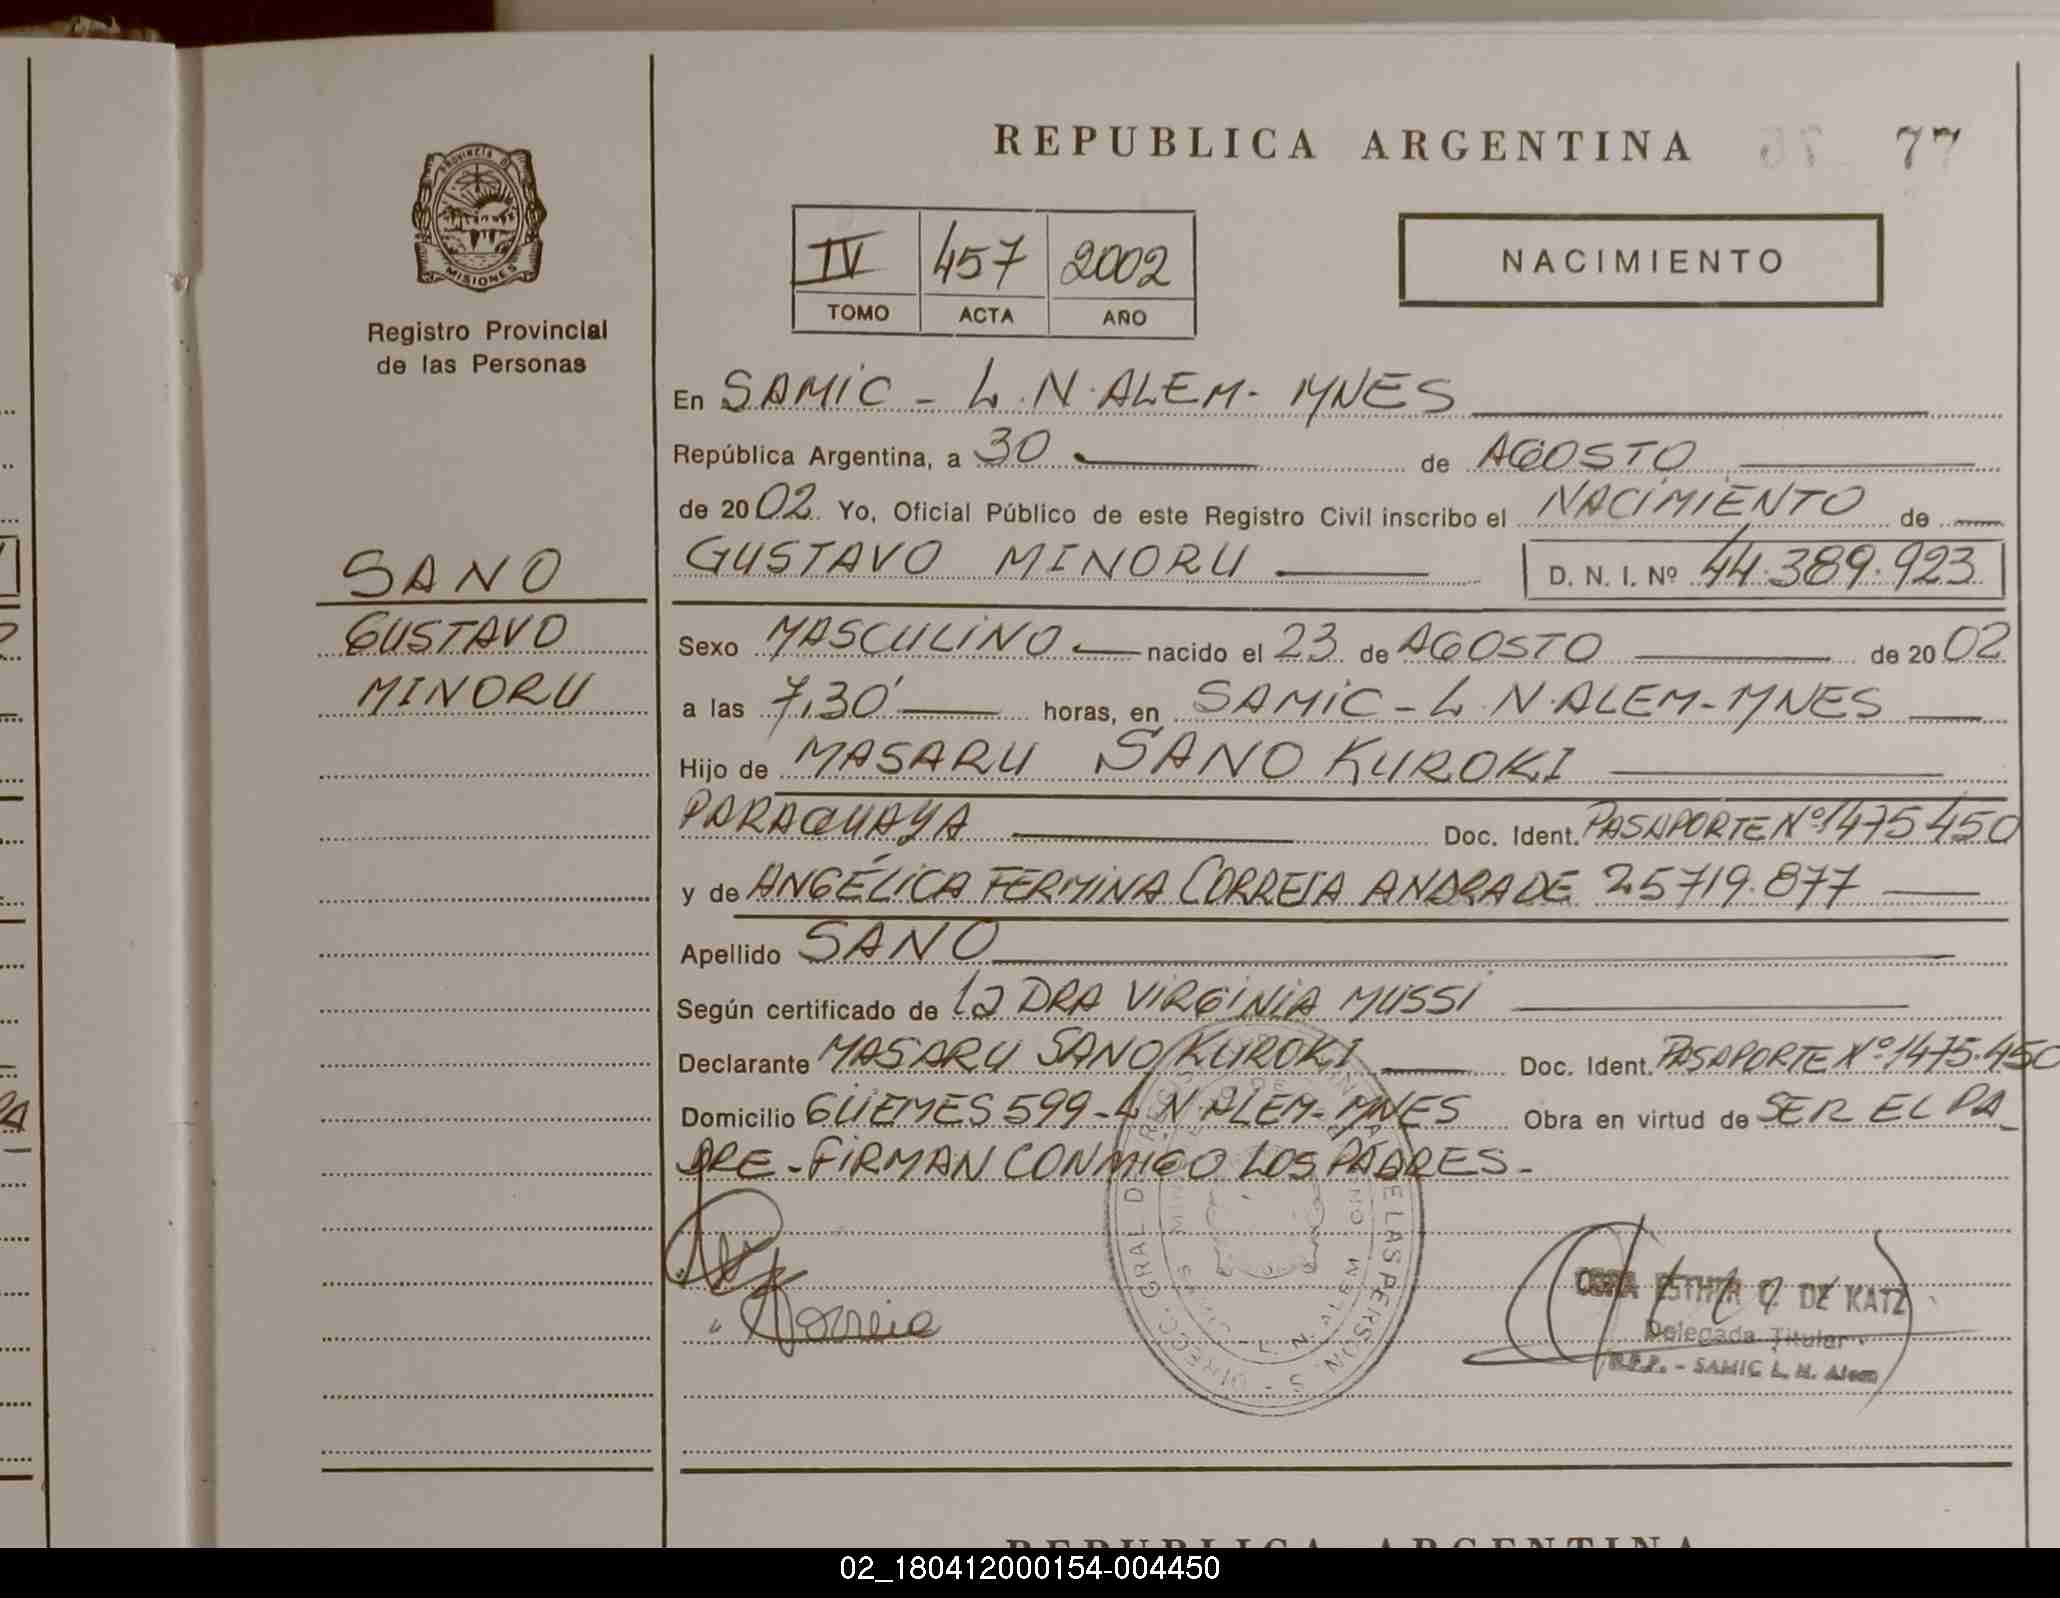 REPUBLICA ARGENTINA 77
PROVINCIA DE
MISIONES
Registro Provincial
de las Personas
IV 457 2002
TOMO ACTA AÑO
NACIMIENTO
En SAMIC - L.N.ALEM- MNES
República Argentina, a 30 de AGOSTO
de 2002. Yo, Oficial Público de este Registro Civil inscribo el NACIMIENTO de
GUSTAVO MINORU D. N. I. Nº 44.389.923
SANO
GUSTAVO
MINORU
Sexo MASCULINO nacido el 23 de AGOSTO de 2002
a las 7,30' horas, en SAMIC - L.N.ALEM-MNES
Hijo de MASARU SANO KUROKI
PARAGUAYA Doc. Ident. PASAPORTE Nº1475450
y de ANGÉLICA FERMINA CORREIA ANDRADE 25719.877
Apellido SANO
Según certificado de la DRA VIRGINIA MUSSI
Declarante MASARU SANO KUROKI Doc. Ident. PASAPORTE Nº1475.450
Domicilio GÜEMES 599-L N ALEM- MNES Obra en virtud de SER EL PA_
DRE - FIRMAN CONMIGO LOS PADRES-
Correia
ESTHER C. DE KATZ
Delegada Titular
R.P.P. - SAMIC L. N. Alem
REPUBLICA ARGENTINA
02_180412000154-004450